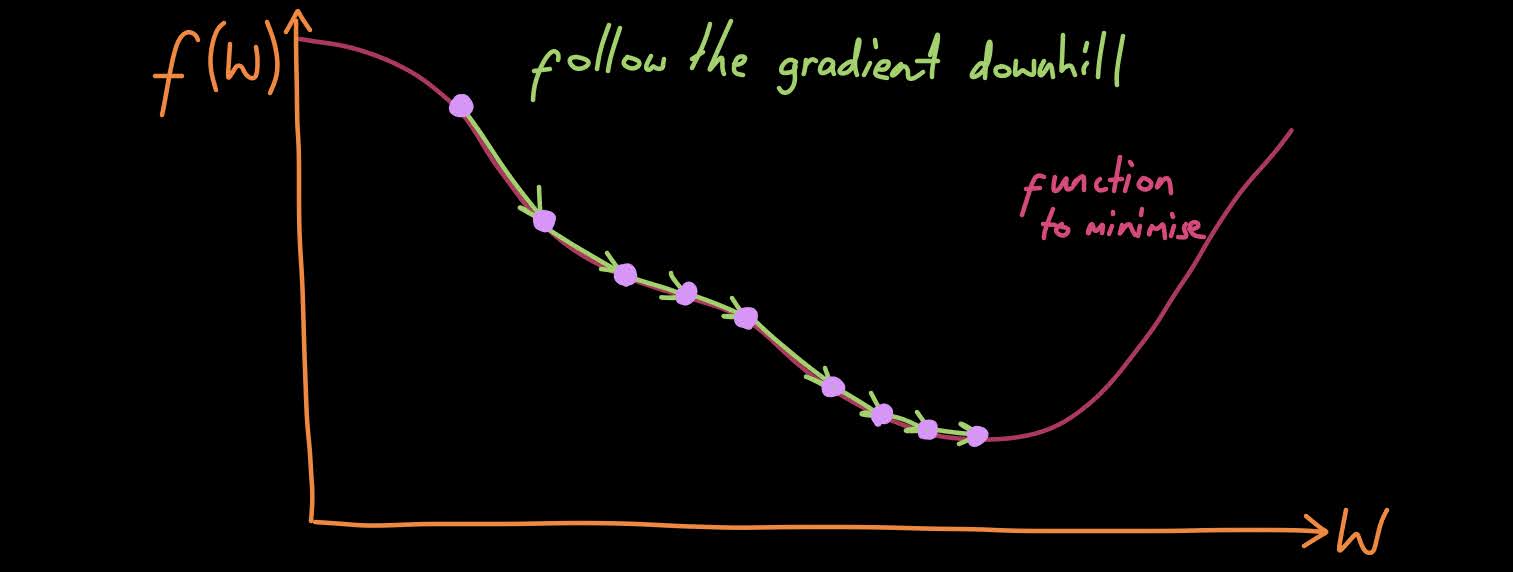 f(W)
follow the gradient downhill
function
to minimise
W